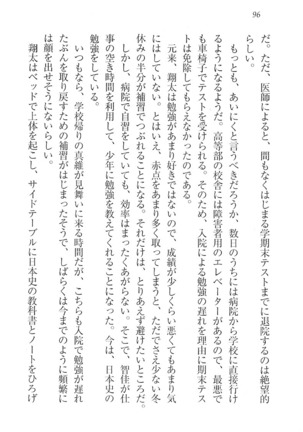 96
だ。ただ、医師によると、間もなくはじまる学期末テストまでに退院するのは絶望的
らしい。
もっとも、あいにくと言うべきだろうか、数日のうちには病院から学校に直接行け
るようになるようだ。高等部の校舎には障害者用のエレベーターがあるので、最悪で
も車椅子でテストを受けられる。そのため、入院による勉強の遅れを理由に期末テス
トは免除してもらえなかったのである。
元来、翔太は勉強があまり好きではないので、成績が少しくらい悪くてもあまり気
にはしていない。とはいえ、赤点をあまり多く取ってしまうと、ただでさえ少ない冬
休みの半分が補習でつぶれることになる。それだけは、とりあえず避けたいところだ。
しかし、病院で自習をしていても、効率はまったくあがらない。そこで、智佳が仕
事の空き時間を利用して、少年に勉強を教えてくれることになった。今は、日本史の
勉強をしている。
いつもなら、学校帰りの真維が見舞いに来る時間だが、こちらも入院で勉強が遅れ
たぶんを取り戻すための補習がはじまったそうで、しばらくは今までのように頻繁に
は顔を出せそうにないらしい。
翔太はベッドで上体を起こし、サイドテーブルに日本史の教科書とノートをひろげ